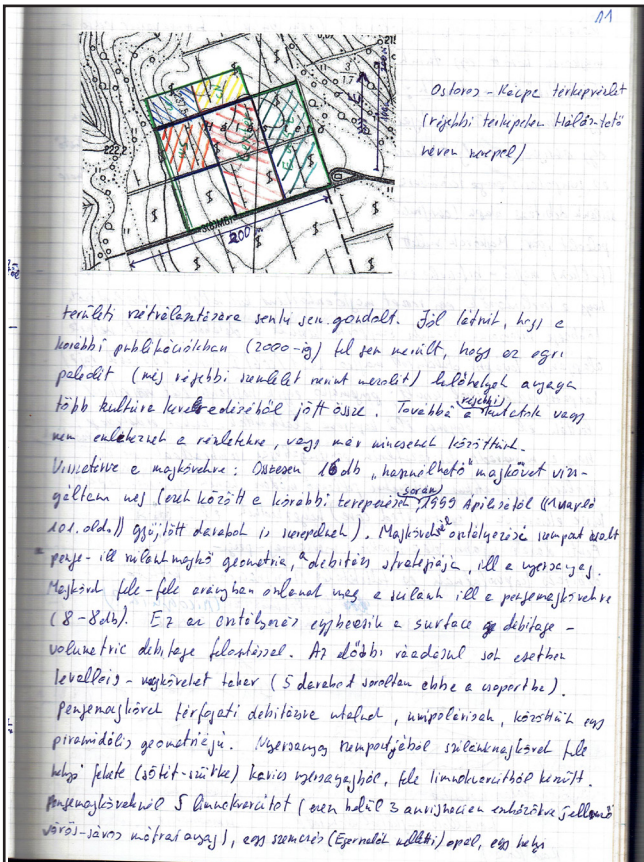 11
Ostoros - Kácpa térképvázlat
(régebbi térképeken Halász-tető
néven szerepel)
222,2
200 m
területi szétválasztására senki sem gondolt. Jól látni, hogy a
korábbi publikációkban (2000-ig) fel sem merült, hogy az egri
paleolit (még régebbi szemlélet szerint mezolit) lelőhelyek anyaga
több kultúra keveredéséből jött össze. Továbbá a régebbi kutatók vagy
nem emlékeznek a részletekre, vagy már nincsenek közöttünk.
Visszatérve a magkövekre: Összesen 16 db „használható" magkövet vizs-
gáltam meg (ezek között a korábbi terepezések során, 1999 áprilisától
101. old.)) gyűjtött darabok is szerepelnek). Magkövek osztályozási szempont
penge- ill szilánkmagkő geometria, a debitázs stratégiája, ill a nyersanyag.
Magkövek fele-fele arányban oszlanak meg a szilánk ill a pengemagkövekre
(8-8db). Ez az osztályozás egybeesik a surface debitage -
volumetric debitage felosztással. Az előbbi ráadásul sok esetben
levallois - magköveket takar (5 darabot soroltam ebbe a csoportba).
pengemagkövek térfogati debitázsra utalnak, unipolárisak, közöttük egy
piramidális geometriájú. Nyersanyag szempontjából szilánkmagkövek fele
helyi fekete (sötét-szürke) kavics nyersanyagból, fele limnokvarcitból készült.
pengemagköveknél 5 limnokvarcitot (ezen belül 3 aurignacien eszközökre jellemző
vörös-sávos mátrai anyag), egy szemcsés (Egerszalók melletti) opál, egy helyi